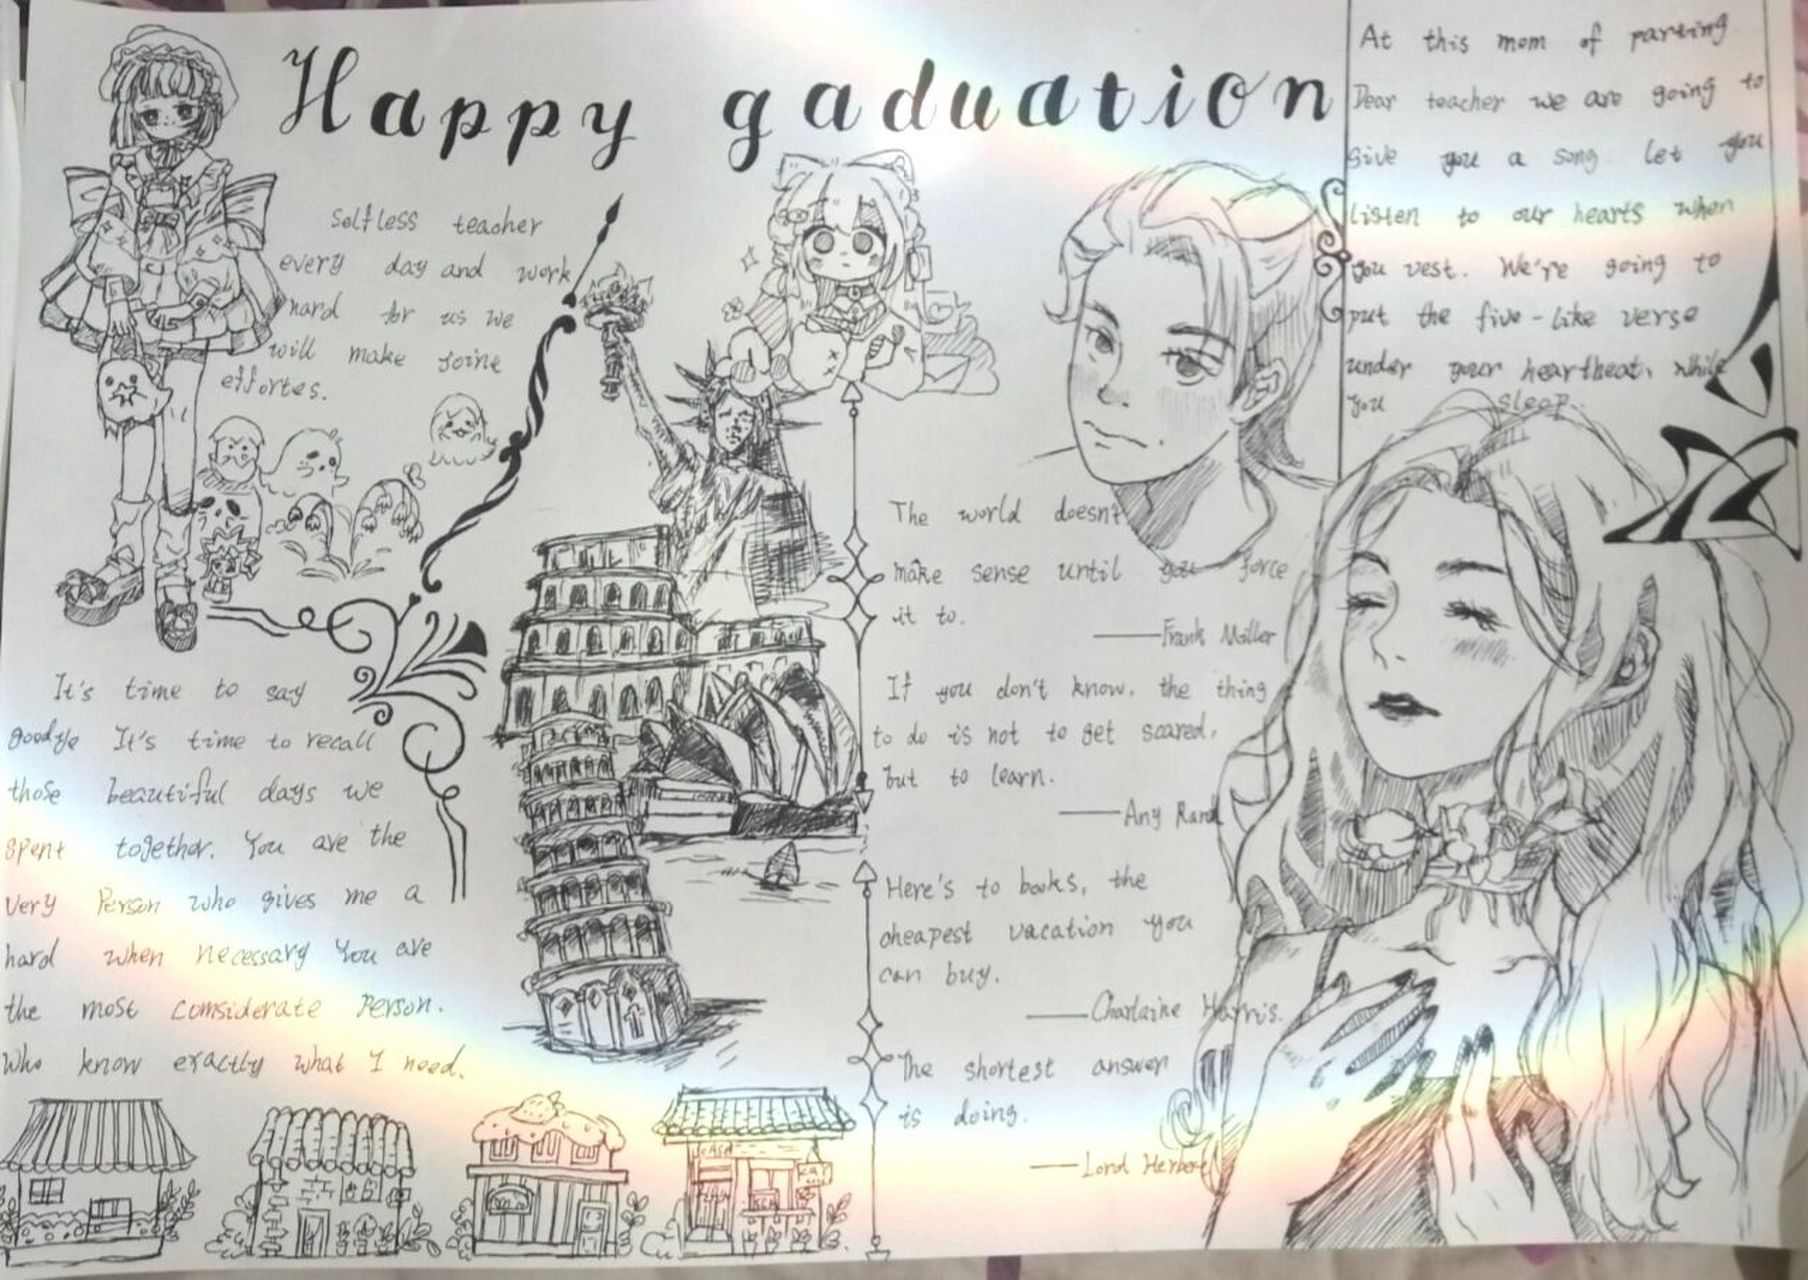 Happy gaduation
Selfless teacher
every day and work
hard for us we
will make joine
effortes.
It's time to say
goodye It's time to recall
those beautiful days we
spent together. You are the
very Person who gives me a
hard when necessary You are
the most comsiderate Person.
Who know exactly what I need.
The world doesn't
make sense until you force
it to.
——Frank Miller
If you don't know, the thing
to do is not to get scared,
but to learn.
——Any Rand
Here's to books, the
cheapest vacation you
can buy.
——Charlaine Harris.
The shortest answer
is doing.
——Lord Herbert
At this mom of parting
Dear teacher we are going to
give you a song let you
listen to our hearts when
you vest. We're going to
put the five-like verse
under your heartbeat, while
you sleep.